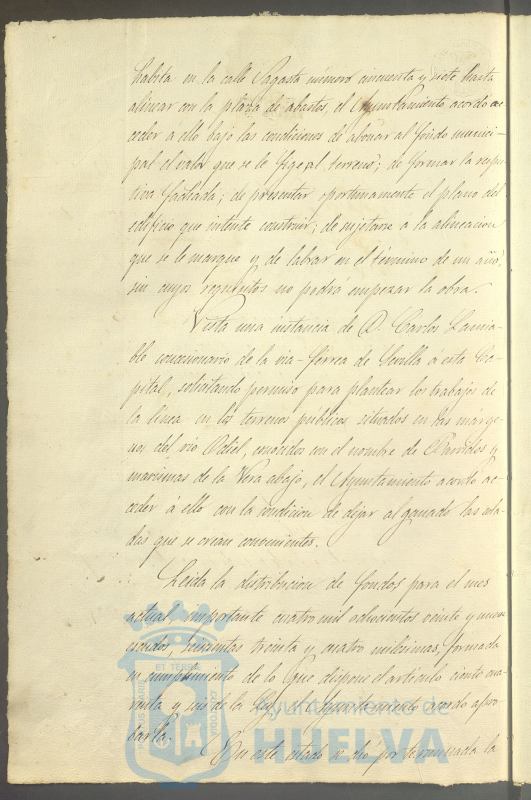 habita en la calle Sagasta número cincuenta y siete hasta
alinear con la plaza de abastos, el Ayuntamiento acordó ac-
ceder a ello bajo las condiciones de abonar al fondo munici-
pal el valor que se le fige al terreno; de formar la respec-
tiva fachada; de presentar oportunamente el plano del
edificio que intente construir; de sujetarse a la alineacion
que se le marque y de labrar en el término de un año,
sin cuyos requisitos no podrá empezar la obra.
Vista una instancia de D. Carlos Lamia-
ble concesionario de la via-férrea de Sevilla a esta Ca-
pital, solicitando permiso para plantear los trabajos de
la linea en los terrenos públicos situados en las márge-
nes del rio Odiel, conocidos con el nombre de
marismas de la Vera abajo, el Ayuntamiento acordó ac-
ceder á ello con la condicion de dejar al ganado las
que se crean convenientes.
Leida la distribucion de fondos para el mes
actual importante cuatro mil ochocientos veinte y nueve
escudos, seiscientas treinta y cuatro milésimas, formada
en cumplimiento de lo que dispone el artículo ciento cua-
renta y seis de la Ley, el Ayuntamiento acordó apro-
barla.
En este estado se dió por terminada la
ET TERRAE
PORTUS MARIS
CUSTODIA
Ayuntamiento de
HUELVA